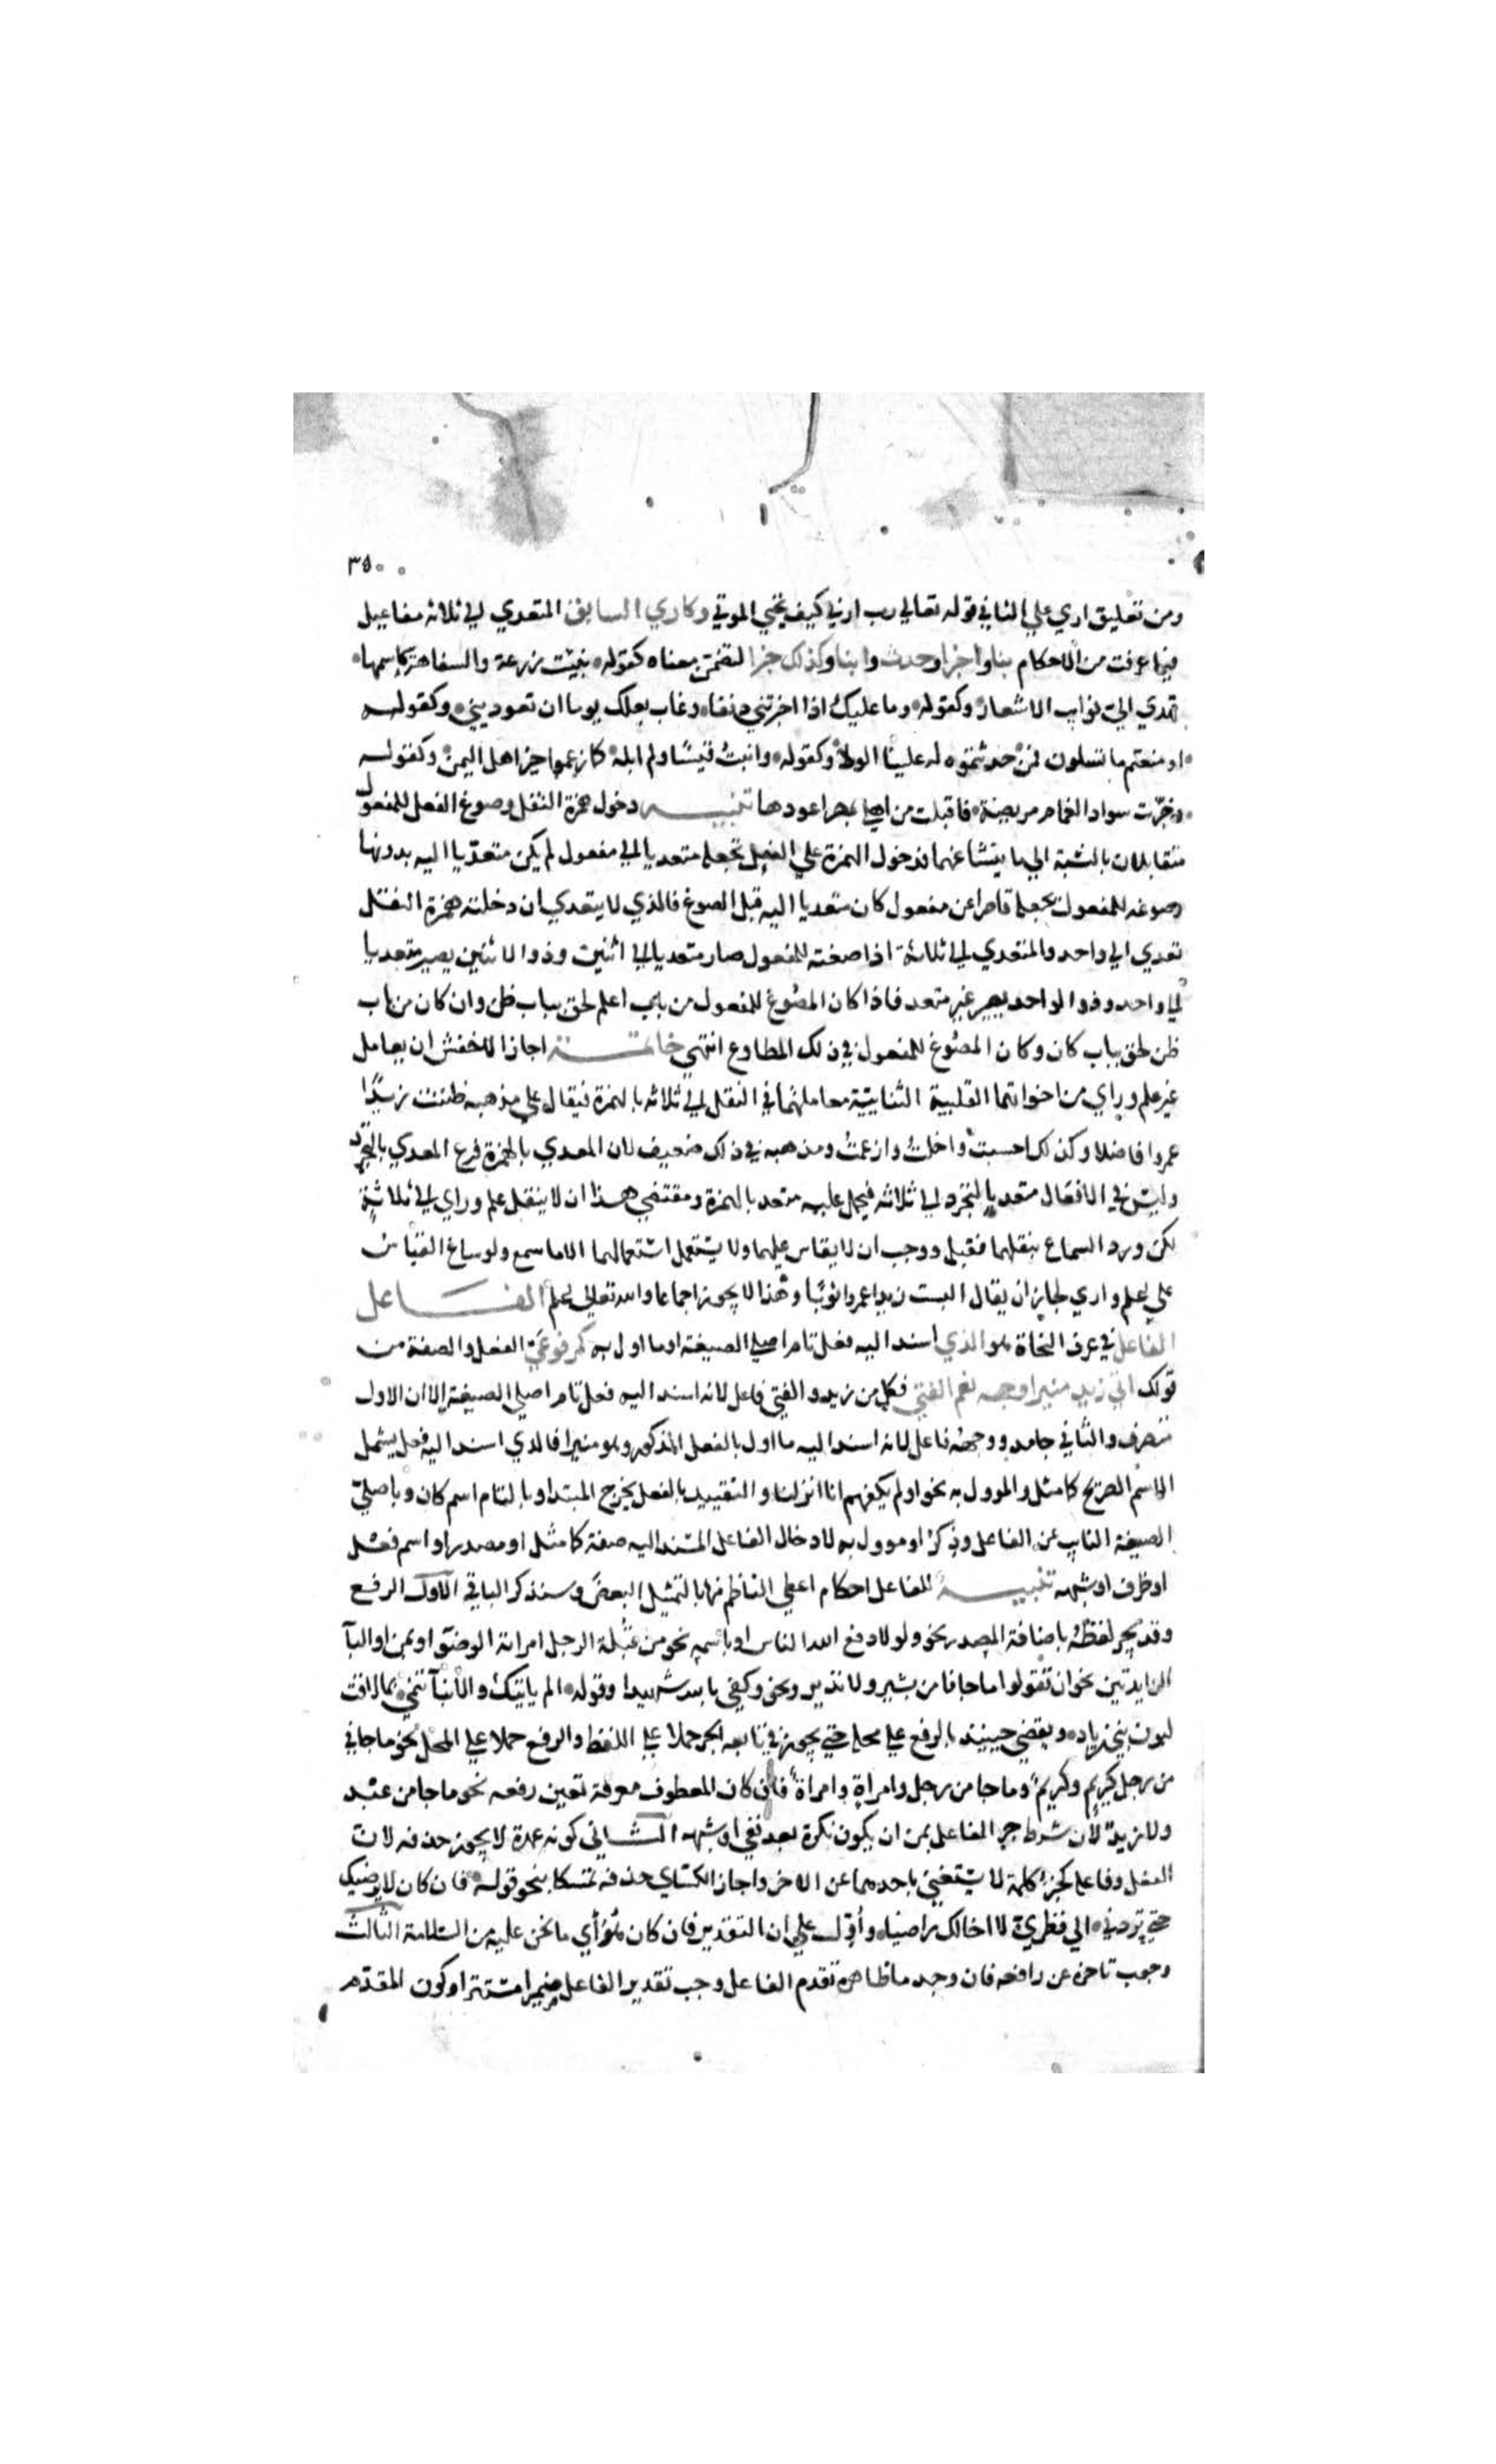 ٣٥٠
ومن تعليق اري علي الثاني قوله تعالي رب ارني كيف تحيي الموتي وكاري السابق المتعدي الي ثلاثة مفاعيل
فيما عرفت من الاحكام نبا واخبرا وحدث وانبا وكذلك خبرا لتضمن معناه كقوله نبيت زرعة والسفاهة كاسمها
تهدي الي غرايب الاشعار وكقوله وما عليك اذا اخبرتني دنفا وغاب بعلك يوما ان تعوديني وكقوله
او منعتم ما تسلون فمن حدثتموه له علينا الولا وكقوله وانبت قيسا ولم ابله كما زعموا خير اهل اليمن وكقوله
وخبرت سوادا الغمام مريضة فاقبلت من اهلي بمصر اعودها تنبيه دخول همزة النقل وصوغ الفعل للمفعول
متقابلان بالنسبة الي ما ينشا عنهما فدخول الهمزة علي الفعل تجعله متعديا الي مفعول لم يكن متعديا اليه بدونها
وصوغه للمفعول يجعله قاصرا عن مفعول كان متعديا اليه قبل الصوغ فالذي لا يتعدي ان دخلته همزة النقل
تعدي الي واحد والمتعدي لي ثلاثة اذا صغته للمفعول صار متعديا الي اثنين وذو الاثنين يصير متعديا
لي واحد وذو الواحد يصير غير متعد فاذا كان المصوغ للمفعول من باب اعلم لحق بباب ظن وان كان من باب
ظن لحق بباب كان وكان المصوغ للمفعول في ذلك المطاوع انتهي خاتمة اجاز الاخفش ان يعامل
غير علم وراي من اخواتهما القلبية الثنايية معاملتهما في النقل لي ثلاثة بالهمزة فيقال علي مذهبه ظننت زيدا
عمروا فاضلا وكذلك احسبت واخلت وازعمت ومذهبه في ذلك ضعيف لان المعدي بالهمزة فرع المعدي بالتجرد
وليس في الافعال متعد بالتجرد لي ثلاثة فيحمل عليه متعد بالهمزة ومقتضي هذا ان لا ينقل علم وراي لي ثلاثة
لكن ورد السماع بنقلهما فقبل ووجب ان لا يقاس عليهما ولا يستعمل استعمالهما الا ما سمع ولو ساغ القياس
علي اعلم واري لجاز ان يقال البست زيدا عمروا ثوبا وهذا لا يجوز اجماعا والله تعالي اعلم الفاعل
الفاعل في عرف النحاة هو الذي اسند اليه فعل تام اصلي الصيغة او ما اول به كمرفوعي الفعل والصفة من
قولك اتي زيد منيرا وجهه نعم الفتي فكل من زيد والفتي فاعل لانه اسند اليه فعل تام اصلي الصيغة الا ان الاول
متصرف والثاني جامد ووجهه فاعل لانه اسند اليه ما اول بالفعل المذكور وهو منيرا فالذي اسند اليه فعل يشمل
الاسم الصريح كما مثل والموول به نحو اولم يكفهم انا انزلنا والتقييد بالفعل يخرج المبتدا وبالتام اسم كان وباصلي
الصيغة النايب عن الفاعل وذكر او موول به لادخال الفاعل المسند اليه صفة كما مثل او مصدر او اسم فعل
او ظرف او شبهه تنبيه للفاعل احكام اعطي الناظم منها بالتمثيل البعض وسنذكر الباقي الاول الرفع
وقد يجر لفظه باضافة المصدر نحو ولولا دفع الله الناس او باسمه نحو من قبلة الرجل امراته الوضو او بمن او البا
الزايدتين نحو ان تقولوا ما جانا من بشير ولا نذير ونحو وكفي بالله شهيدا وقوله الم ياتيك والانبا تنمي بما لاقت
لبون بني زياد ويقضي حينيذ بالرفع علي محله حتي يجوز في تابعه الجر حملا علي اللفظ والرفع حملا علي المحل نحو ما جاني
من رجل كريم وكريم وما جا من رجل وامراة وامراة فان كان المعطوف معرفة تعين رفعه نحو ما جا من عبد
ولا زيد لان شرط جر الفاعل بمن ان يكون نكرة بعد نفي او شبهه الثاني كونه عمدة لا يجوز حذفه لان
الفعل وفاعله كجزي كلمة لا يستغني باحدهما عن الاخر واجاز الكساي حذفه تمسكا بنحو قوله فان كان لا يرضيك
حتي تردني الي قطري لا اخالك راضيا واول علي ان التقدير فان كان هو اي ما نحن عليه من السلامة الثالث
وجوب تاخره عن رافعه فان وجد ما ظاهره تقدم الفاعل وجب تقدير الفاعل ضميرا مستترا وكون المقدم